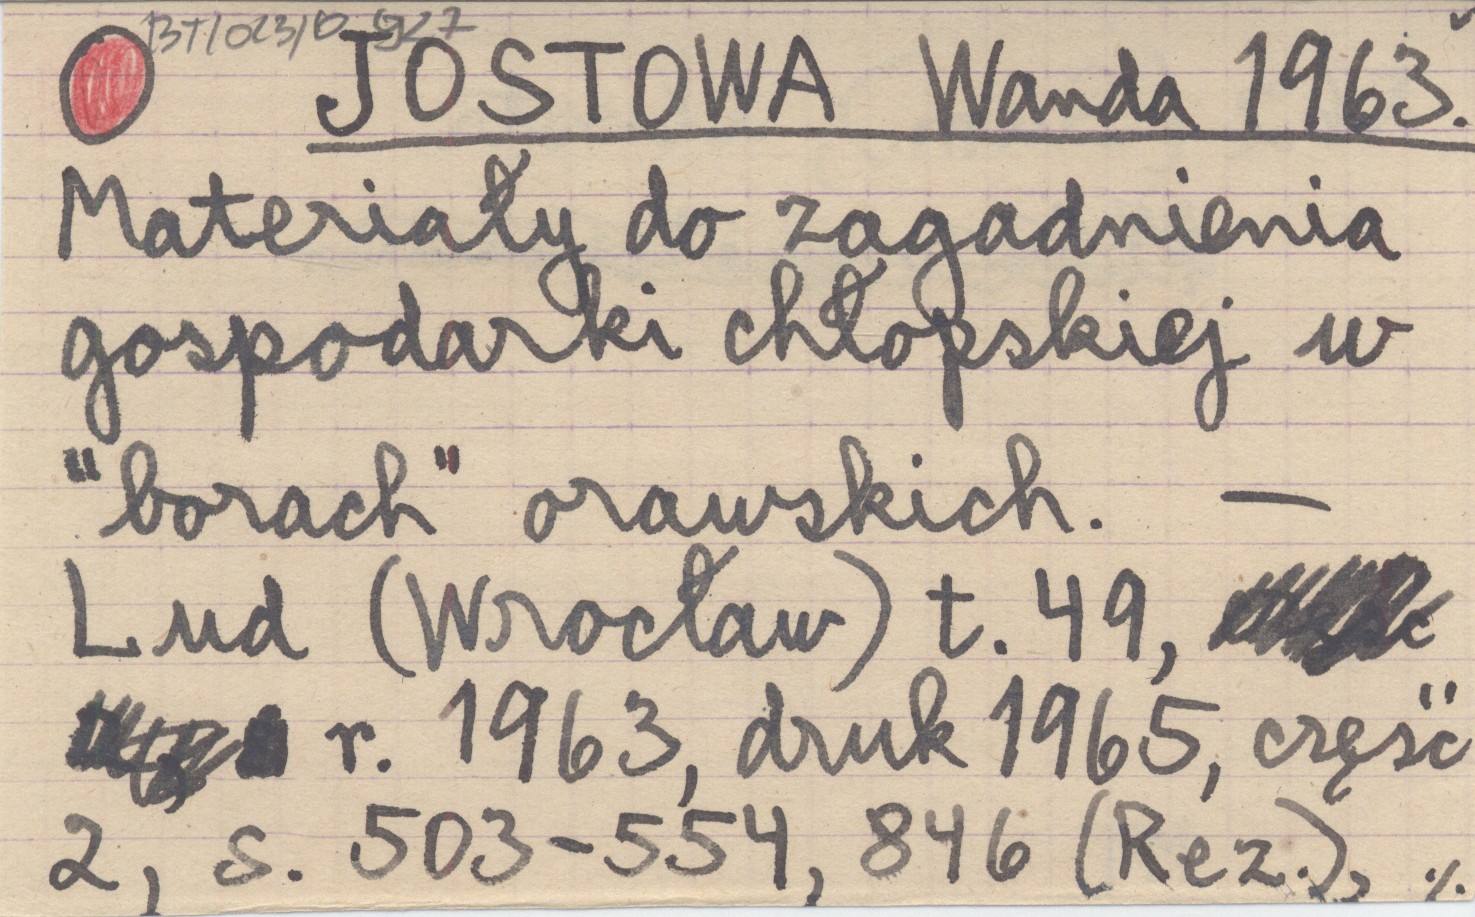 JOSTOWA Wanda 1963.
Materiały do zagadnienia
gospodarki chłopskiej w
"borach" orawskich. —
Lud (Wrocław) t. 49,
r. 1963, druk 1965, część
2, s. 503-554, 846 (Rez.), ./.